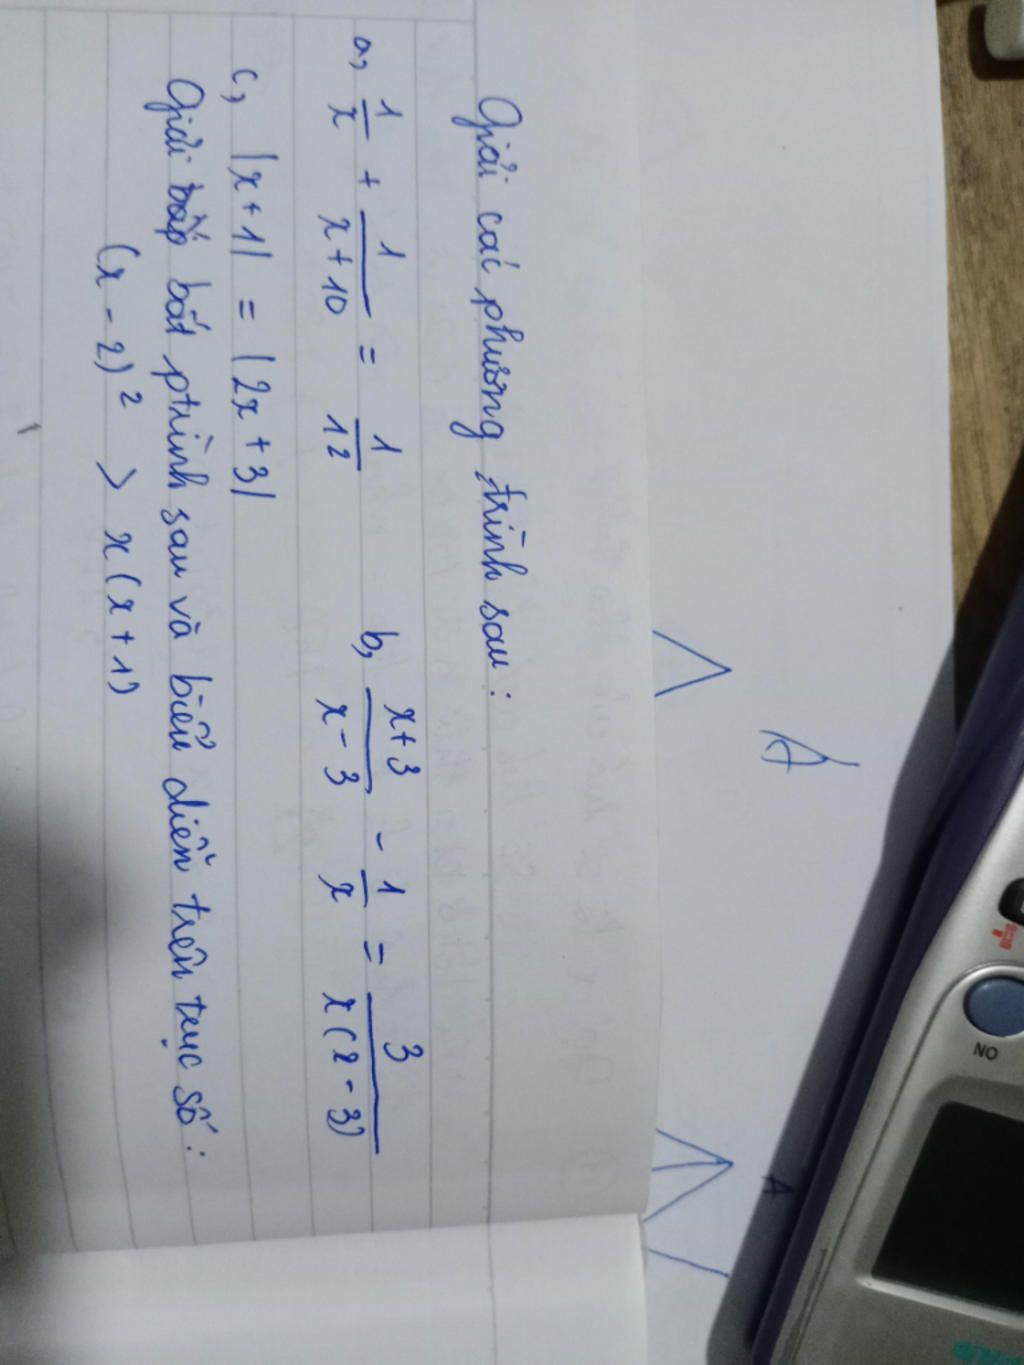 A
A
Giải các phương trình sau :
a, 1/x + 1/(x+10) = 1/12 b, (x+3)/(x-3) - 1/x = 3/(x(x-3))
c, |x+1| = |2x+3|
Giải bất ptrình sau và biểu diễn trên trục số :
(x-2)² > x(x+1)
ON